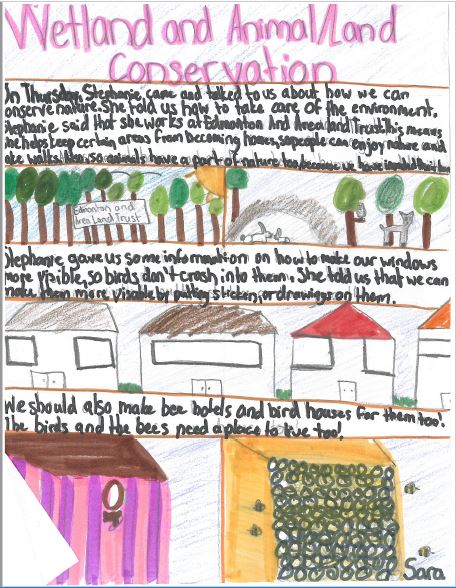 Wetland and Animal/Land
Conservation
On Thursday, Stephanie, came and talked to us about how we can
conserve nature. She told us how to take care of the environment.
Stephanie said that she works at Edmonton And Area land Trust. This means
she helps keep certain areas from becoming homes, so people can enjoy nature and
take walks. Also, so animals have a part of nature too because we have invaded their
Edmonton and
Area Land Trust
Stephanie gave us some information on how to make our windows
more visible, so birds don't crash into them. She told us that we can
make them more visable by putting stickers, or drawings on them.
We should also make bee hotels and bird houses for them too!
The birds and the bees need a place to live too!
Sara